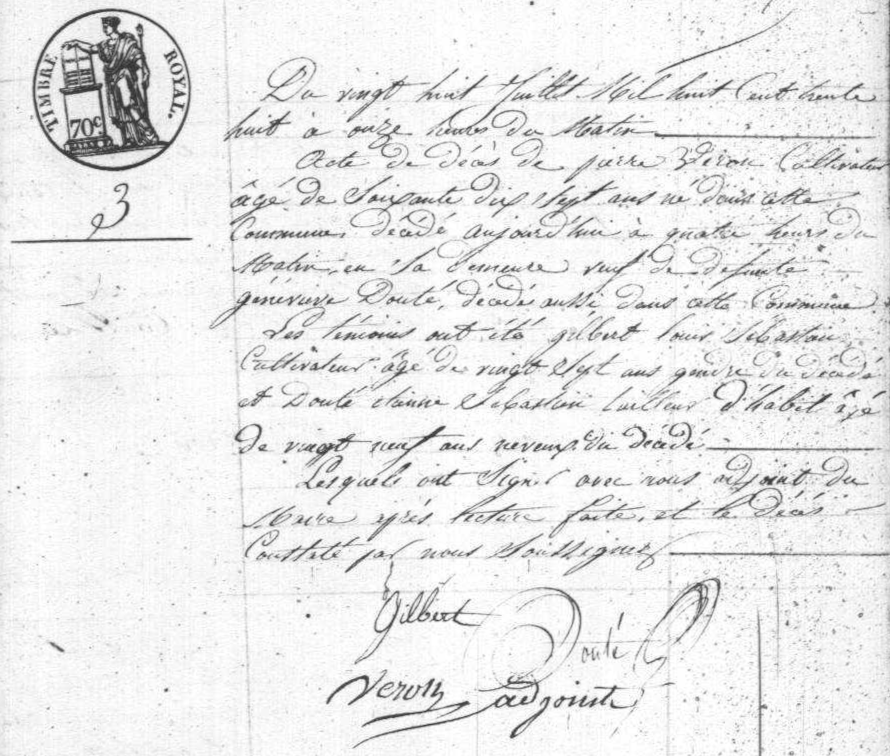 TIMBRE ROYAL.
70c
3
Du vingt huit Juillet Mil huit Cent trente
huit à onze heures du Matin
Acte de décès de pierre Véron Cultivateur
âgé de Soixante dix Sept ans né dans cette
Commune, décédé aujourd'hui à quatre heures du
Matin, en Sa demeure veuf de defunte
généviève Douté, décédé aussi dans cette Commune
Les témoins ont été gilbert louis Sébastien
Cultivateur âgé de vingt Sept ans gendre du décédé
et Douté étienne Sébastien tailleur d'habit âgé
de vingt neuf ans neveux du décédé
Lesquels ont Signé avec nous adjoint du
Maire après lecture faite, et le décès
Constaté par nous Soussigné
Gilbert
Douté
Veron adjoint